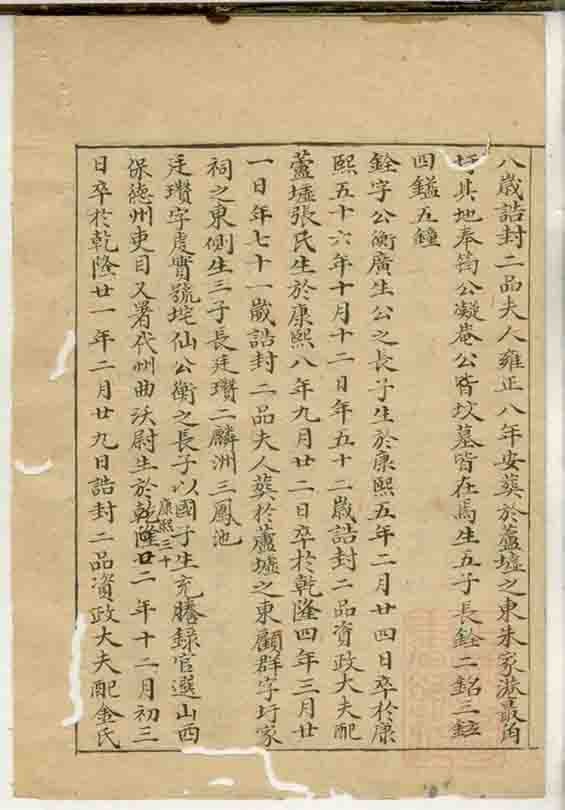 八歲誥封二品夫人雍正八年安葬於蘆墟之東朱家港最角
圩其地奉筠公凝菴公皆坟墓皆在焉生五子長銓二銘三鉝
四鎰五鐘
銓字公衡廣生公之長子生於康熙五年二月廿四日卒於康
熙五十六年十月十二日年五十二歲誥封二品資政大夫配
蘆墟張氏生於康熙八年九月廿二日卒於乾隆四年三月廿
一日年七十一歲誥封二品夫人葬於蘆墟之東顧群字圩家
祠之東側生三子長廷瓚二麟洲三鳳池
廷瓚字虔實號坨仙公衡之長子以國子生充謄錄官選山西
保德州吏目又署代州曲沃尉生於乾隆廿二年十二月初三
康熙三十
日卒於乾隆廿一年二月廿九日誥封二品資政大夫配金氏